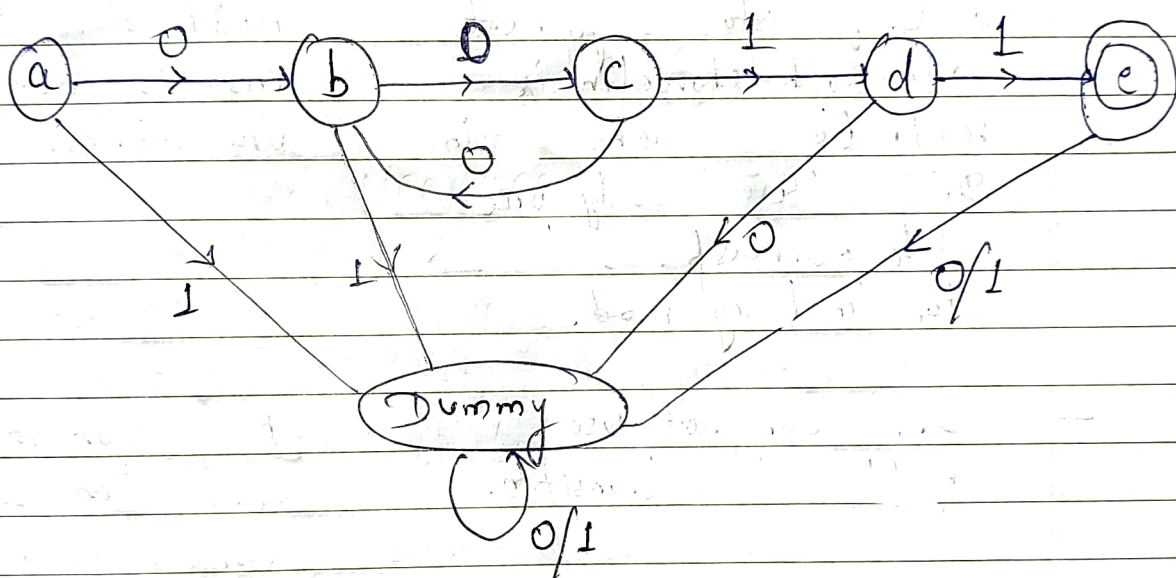 a 0 b 0 c 1 d 1 e
0
1 1 0 0/1
Dummy
0/1